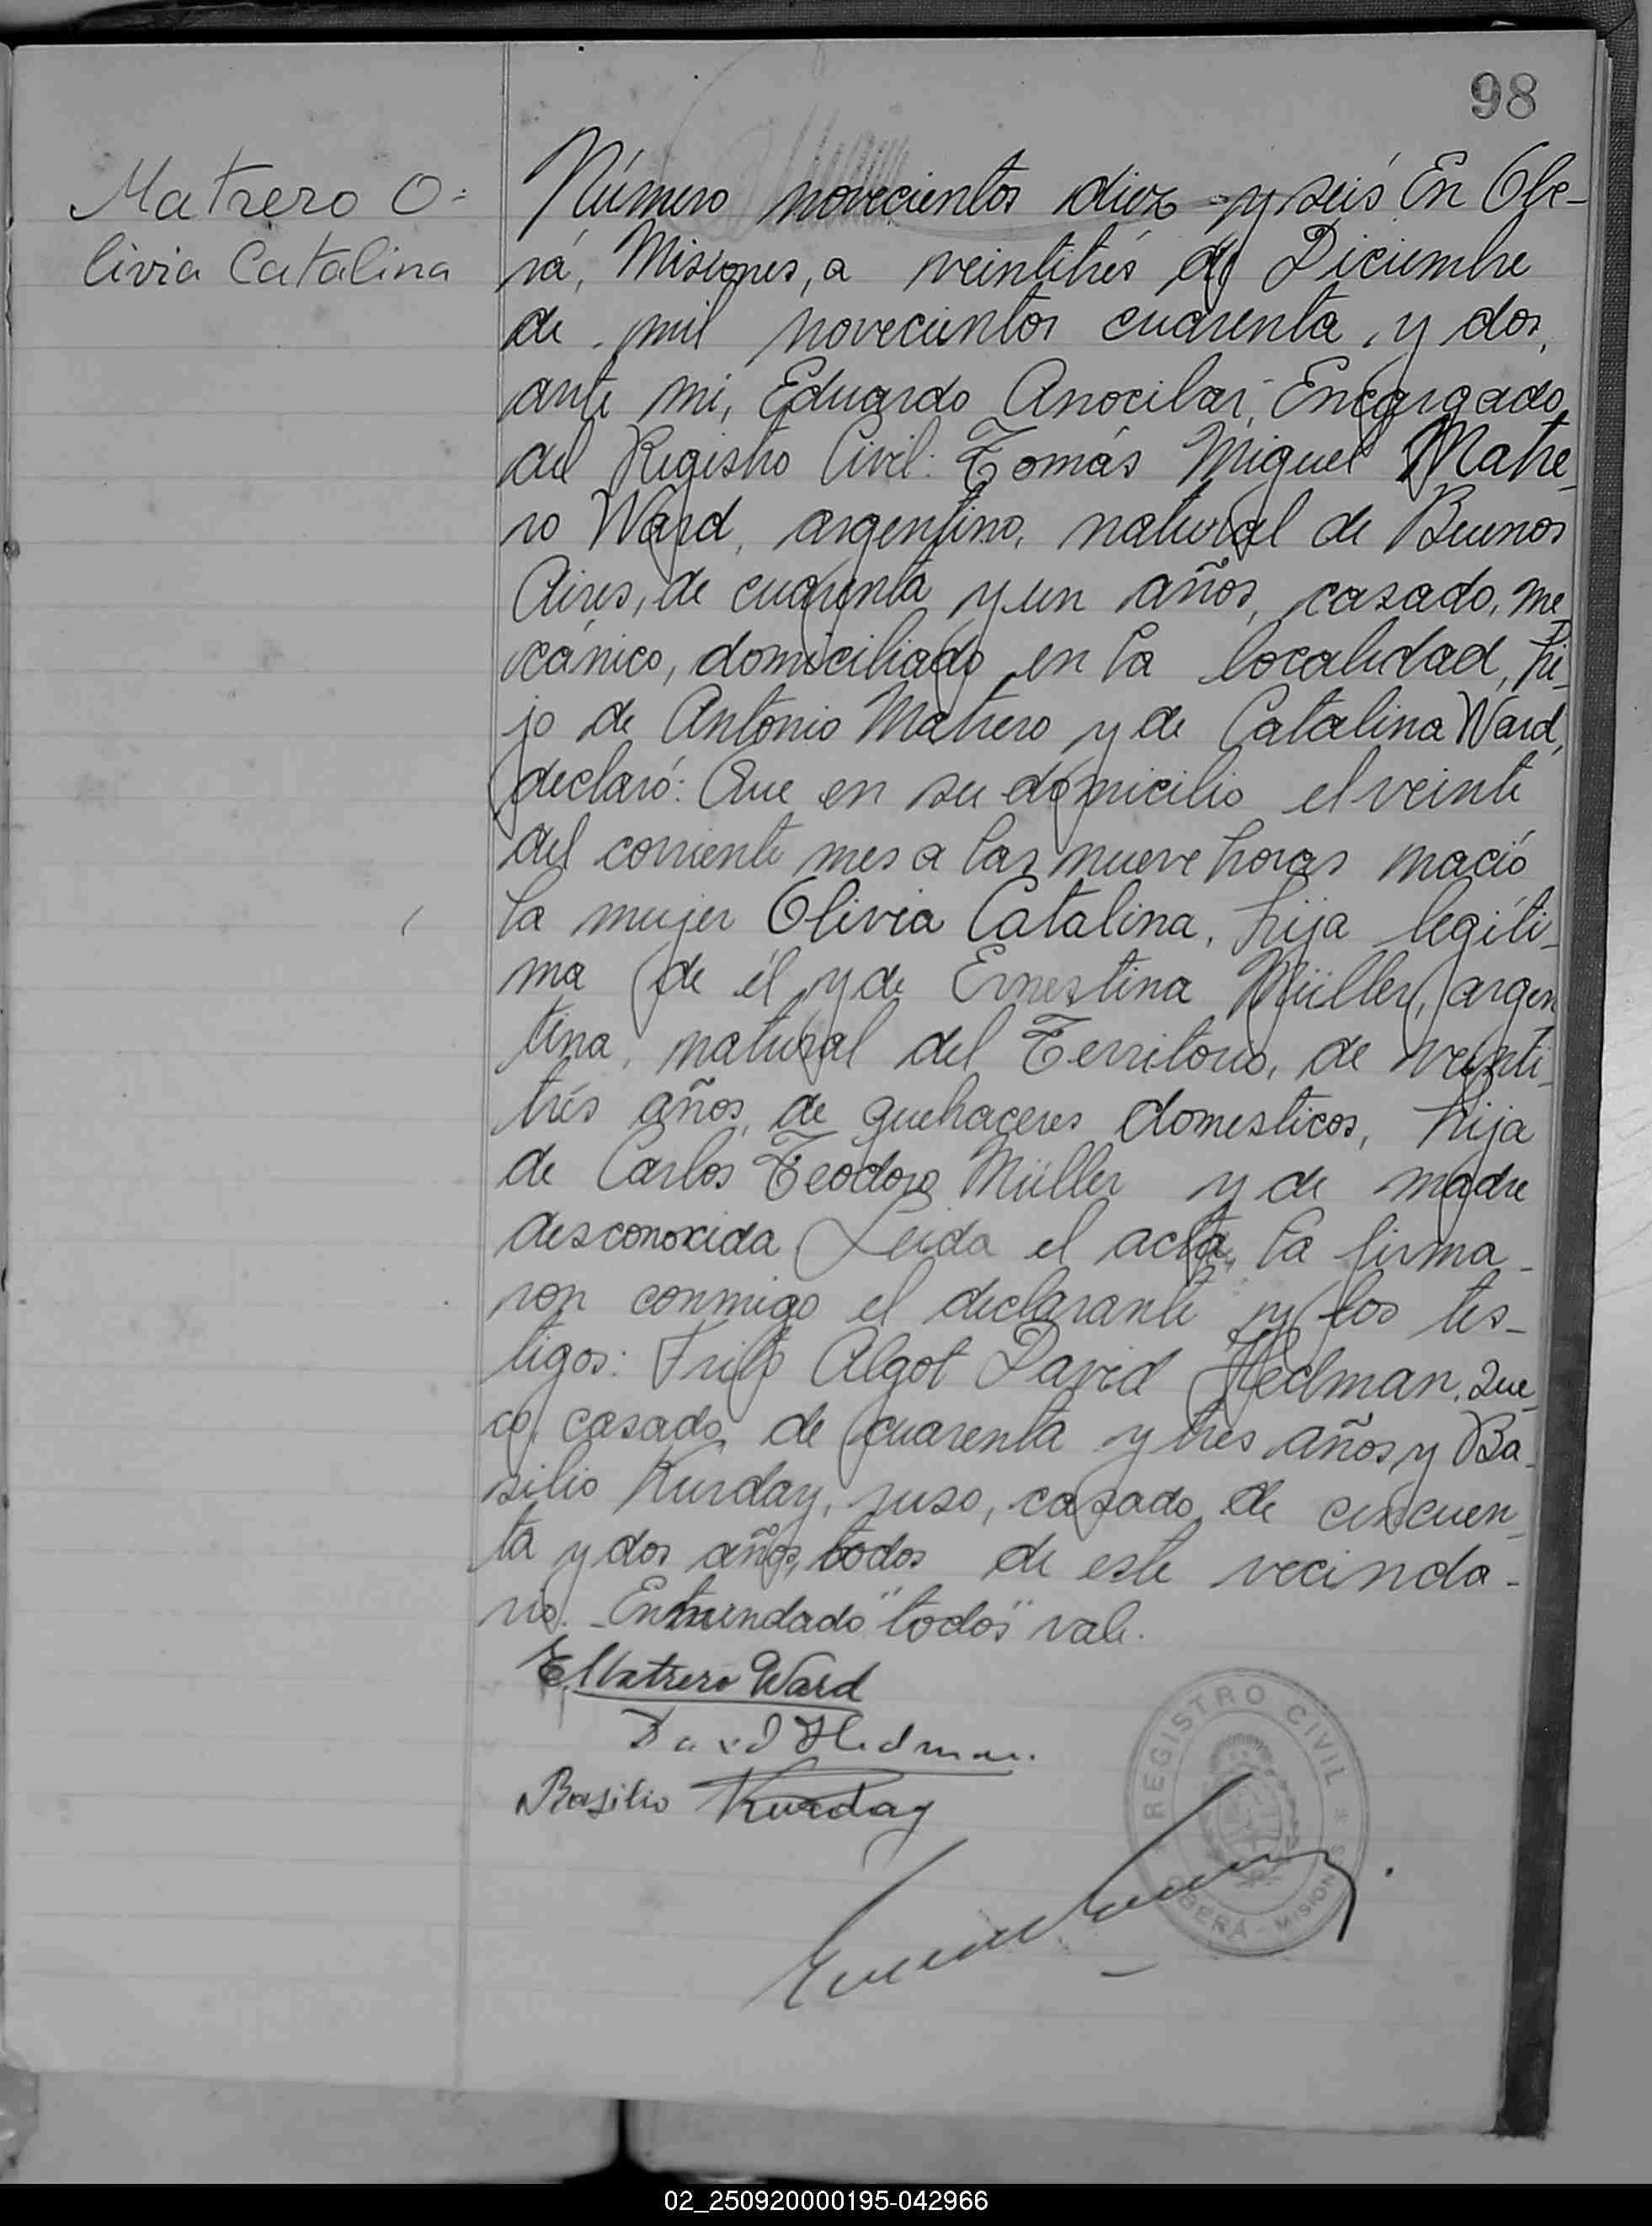 98
Matrero O=
livia Catalina
Número novecientos diez y seis En Obe-
rá, Misiones, a veintitrés de Diciembre
de mil novecientos cuarenta y dos,
ante mi, Eduardo Anocibar, Encargado
del Registro Civil: Tomás Miguel Matre-
ro Ward, argentino, natural de Buenos
Aires, de cuarenta y un años, casado, me-
cánico, domiciliado en la localidad, hi-
jo de Antonio Matrero y de Catalina Ward,
declaró: Que en su domicilio el veinte
del corriente mes a las nueve horas nació
la mujer Olivia Catalina, hija legíti-
ma de él y de Ernestina Müller, argen
tina, natural del Territorio, de veinti-
trés años, de quehaceres domesticos, hija
de Carlos Teodoro Müller y de madre
desconocida Leida el acta, la firma-
ron conmigo el declarante y los tes-
tigos: Algot David Hedman, Sue-
co, casado, de cuarenta y tres años y Ba-
silio Kurday, ruso, casado, de cincuen-
ta y dos años, todos de este vecinda-
rio. - Enmendado "todos" vale.
Matrero Ward
David Hedman.
Basilio Kurday
REGISTRO CIVIL
OBERÁ - MISIONES
02_250920000195-042966